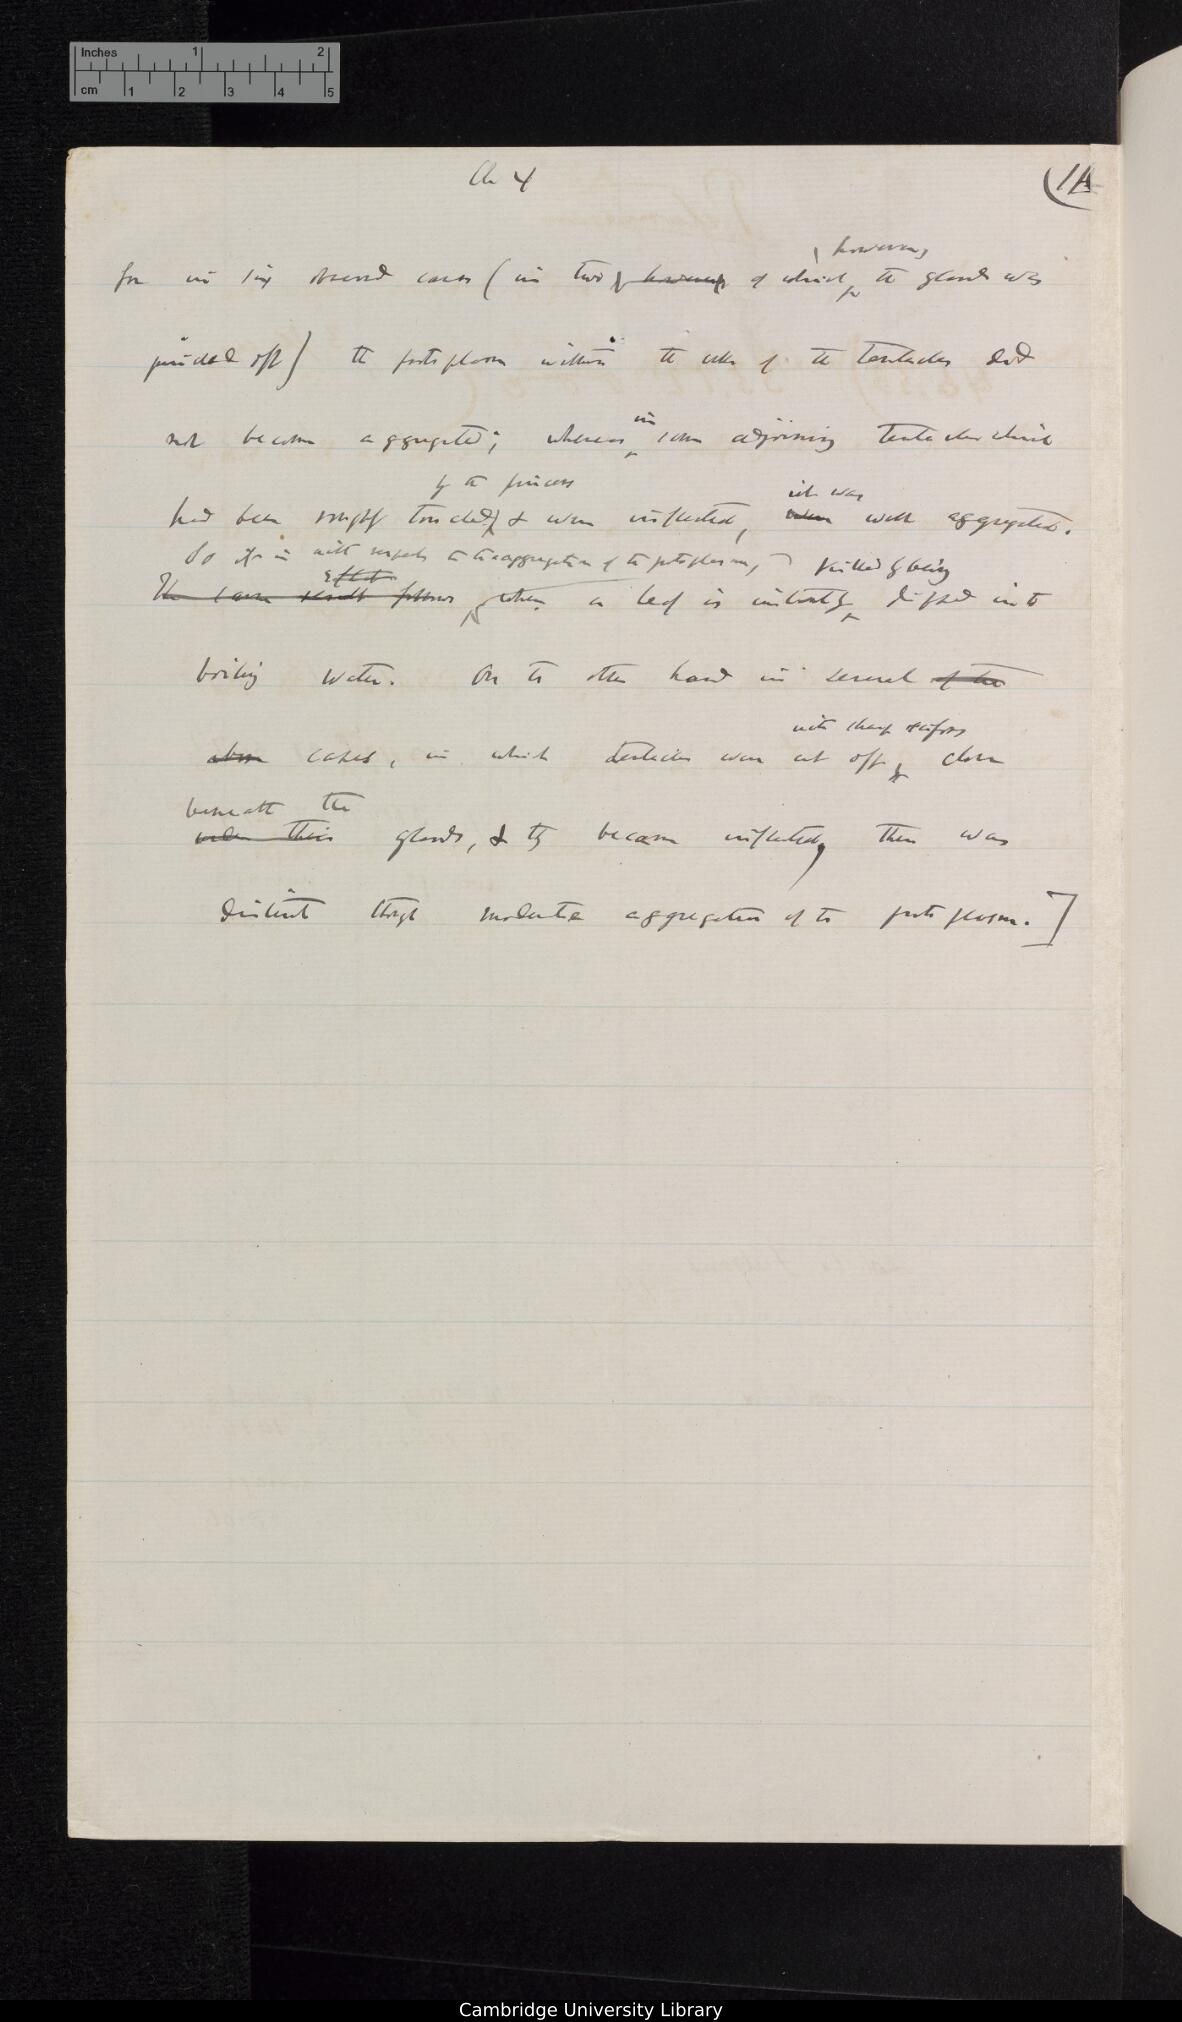 Inches 1 2
cm 1 2 3 4 5
Ch 4
(1A
, however,
for in six observed cases (in two however of which the gland was
pinched off) the protoplasm within the cells of the tentacles did
in
not become aggregated; whereas some adjoining tentacles which
by the pincers
had been roughly touched & were inflected, were well aggregated.
it was
So it is with respect to the aggregation of the protoplasm, killed by being
effect
The same result follows, when a leaf is instantly dipped into
boiling water. On the other hand in several of the
with sharp scissors
above cases, in which tentacles were cut off close
beneath the
under their glands, & they became inflected, there was
distinct though moderate aggregation of the protoplasm.]
Cambridge University Library